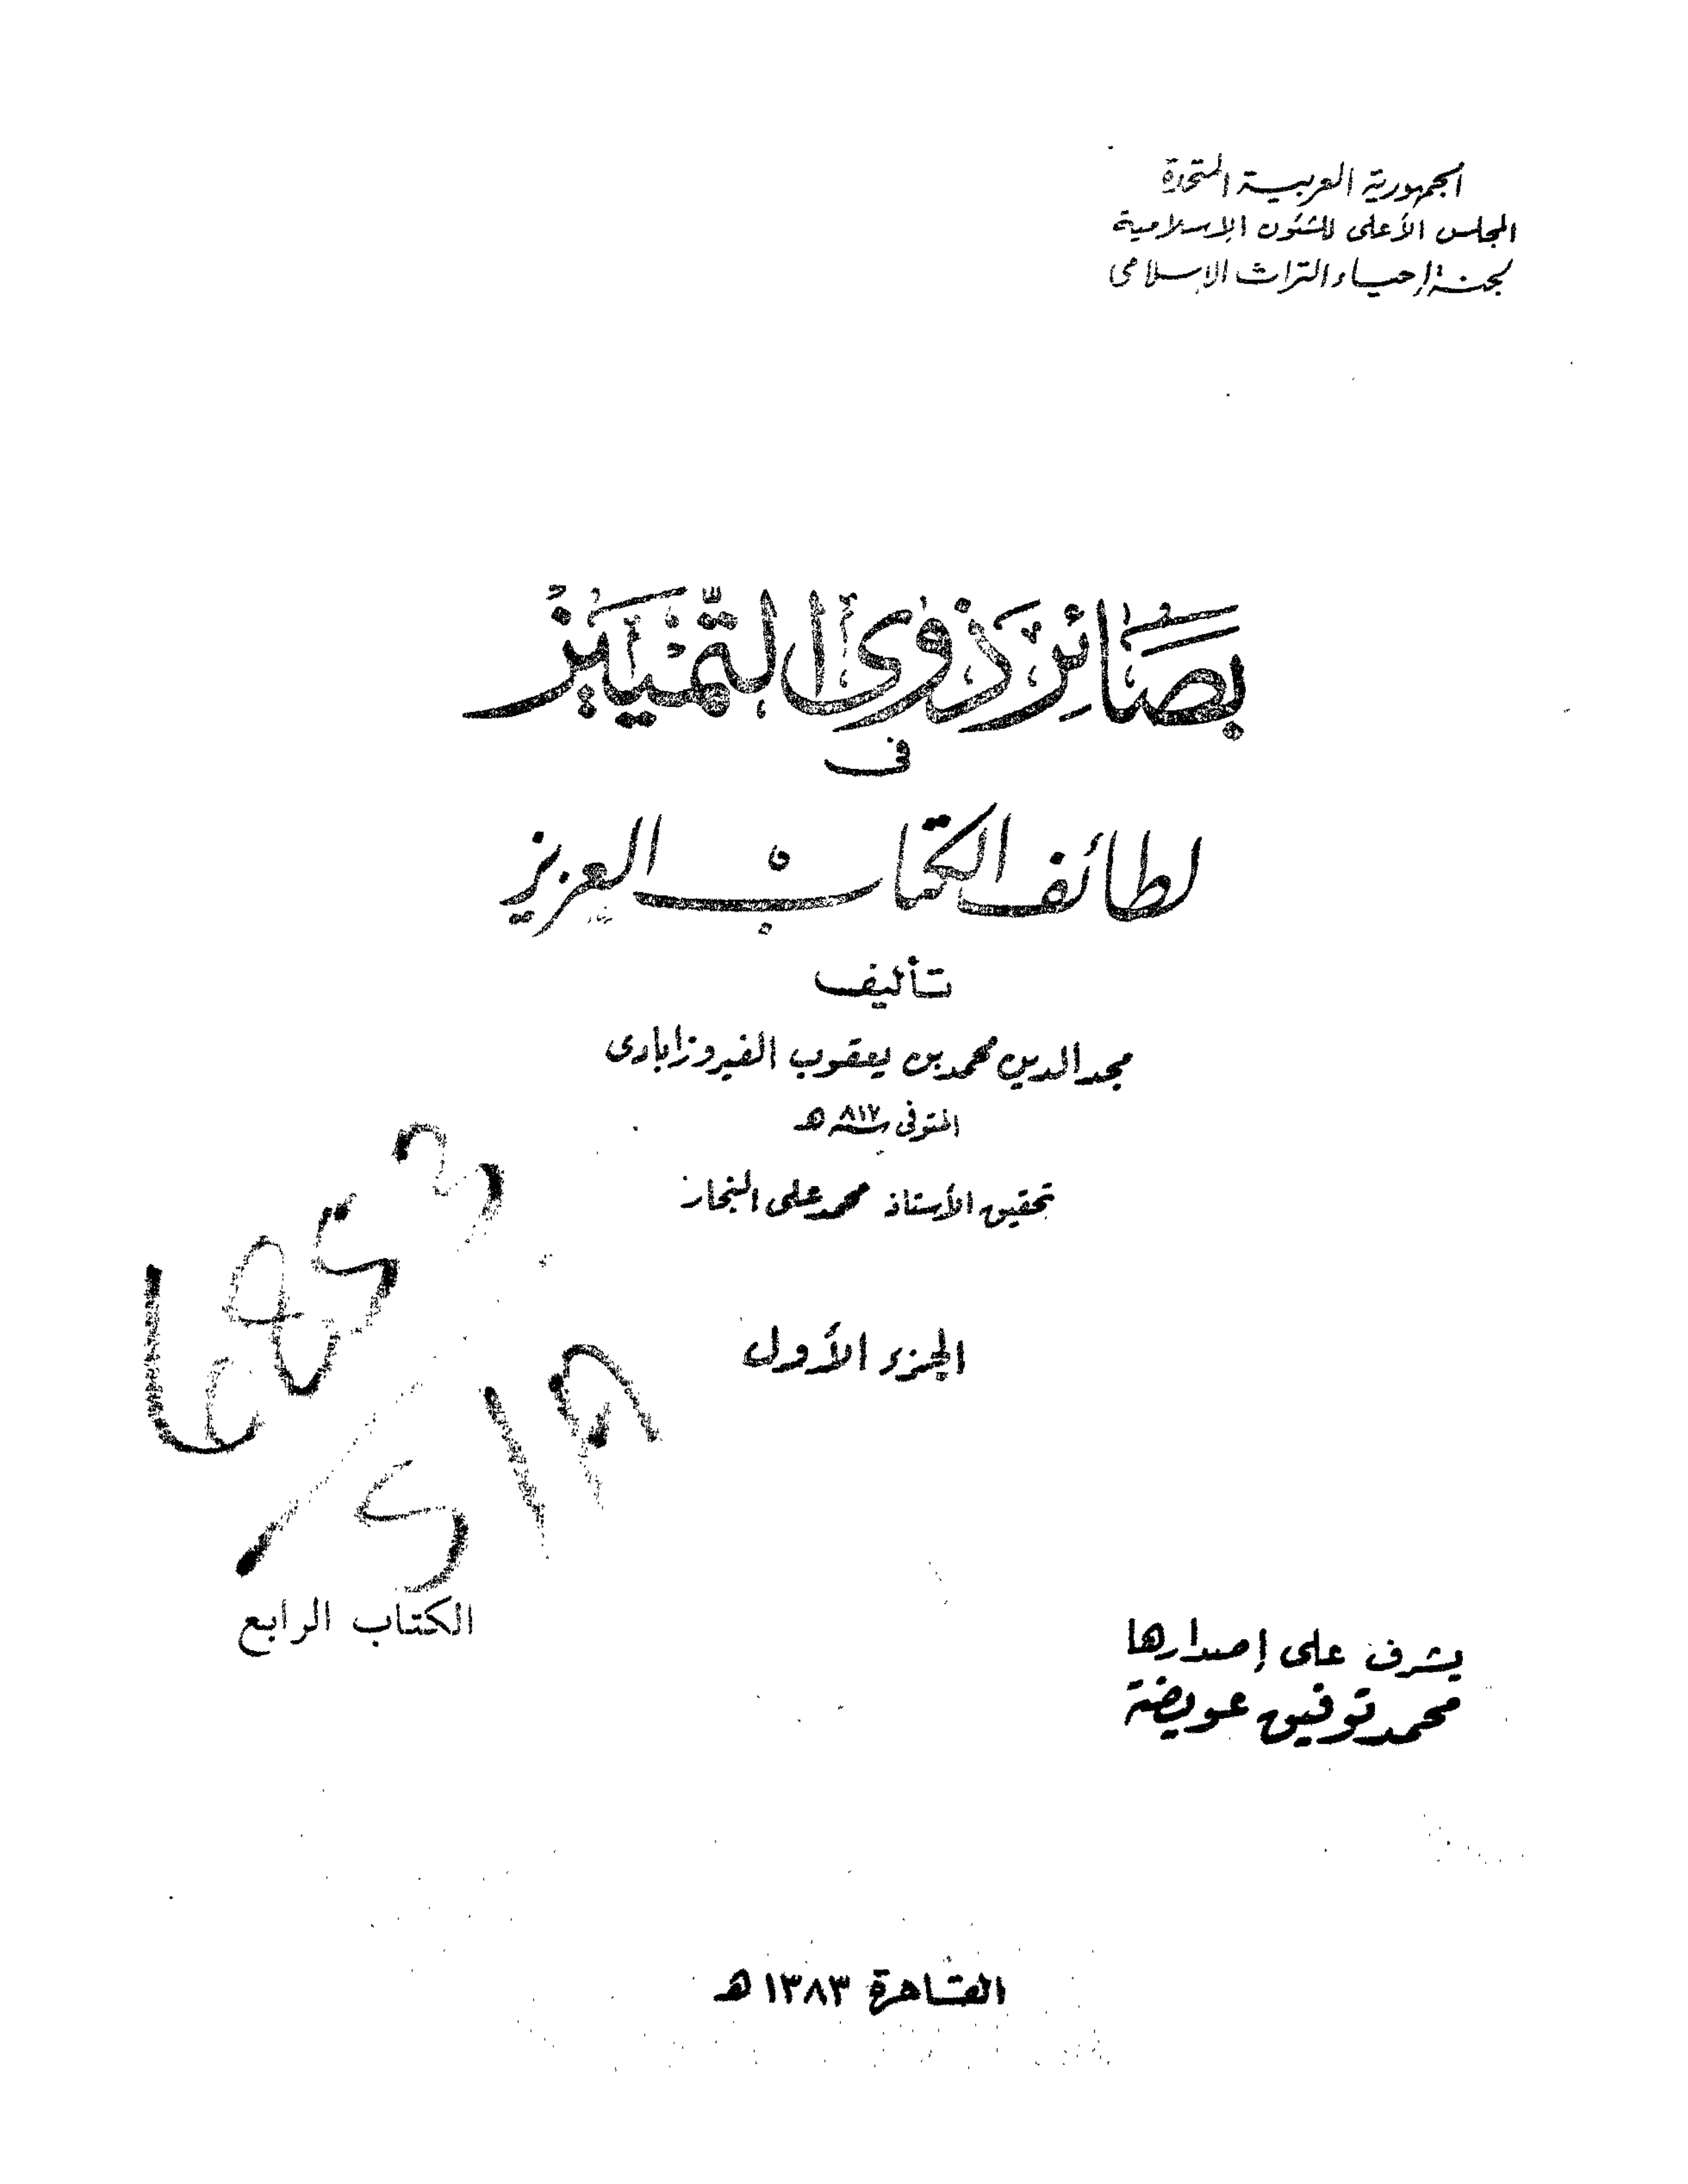 الجمهورية العربية المتحدة
المجلس الأعلى للشئون الإسلامية
لجنة إحياء التراث الإسلامى
بَصَائِر ذَوِى التَّمْيِيز
فى
لطائف الكتاب العزيز
تأليف
مجد الدين محمد بن يعقوب الفيروزابادى
المتوفى سنة ٨١٧ هـ
تحقيق الأستاذ محمد على النجار
الجزء الأول
الكتاب الرابع
يشرف على إصدارها
محمد توفيق عويضة
القاهرة ١٣٨٣ هـ